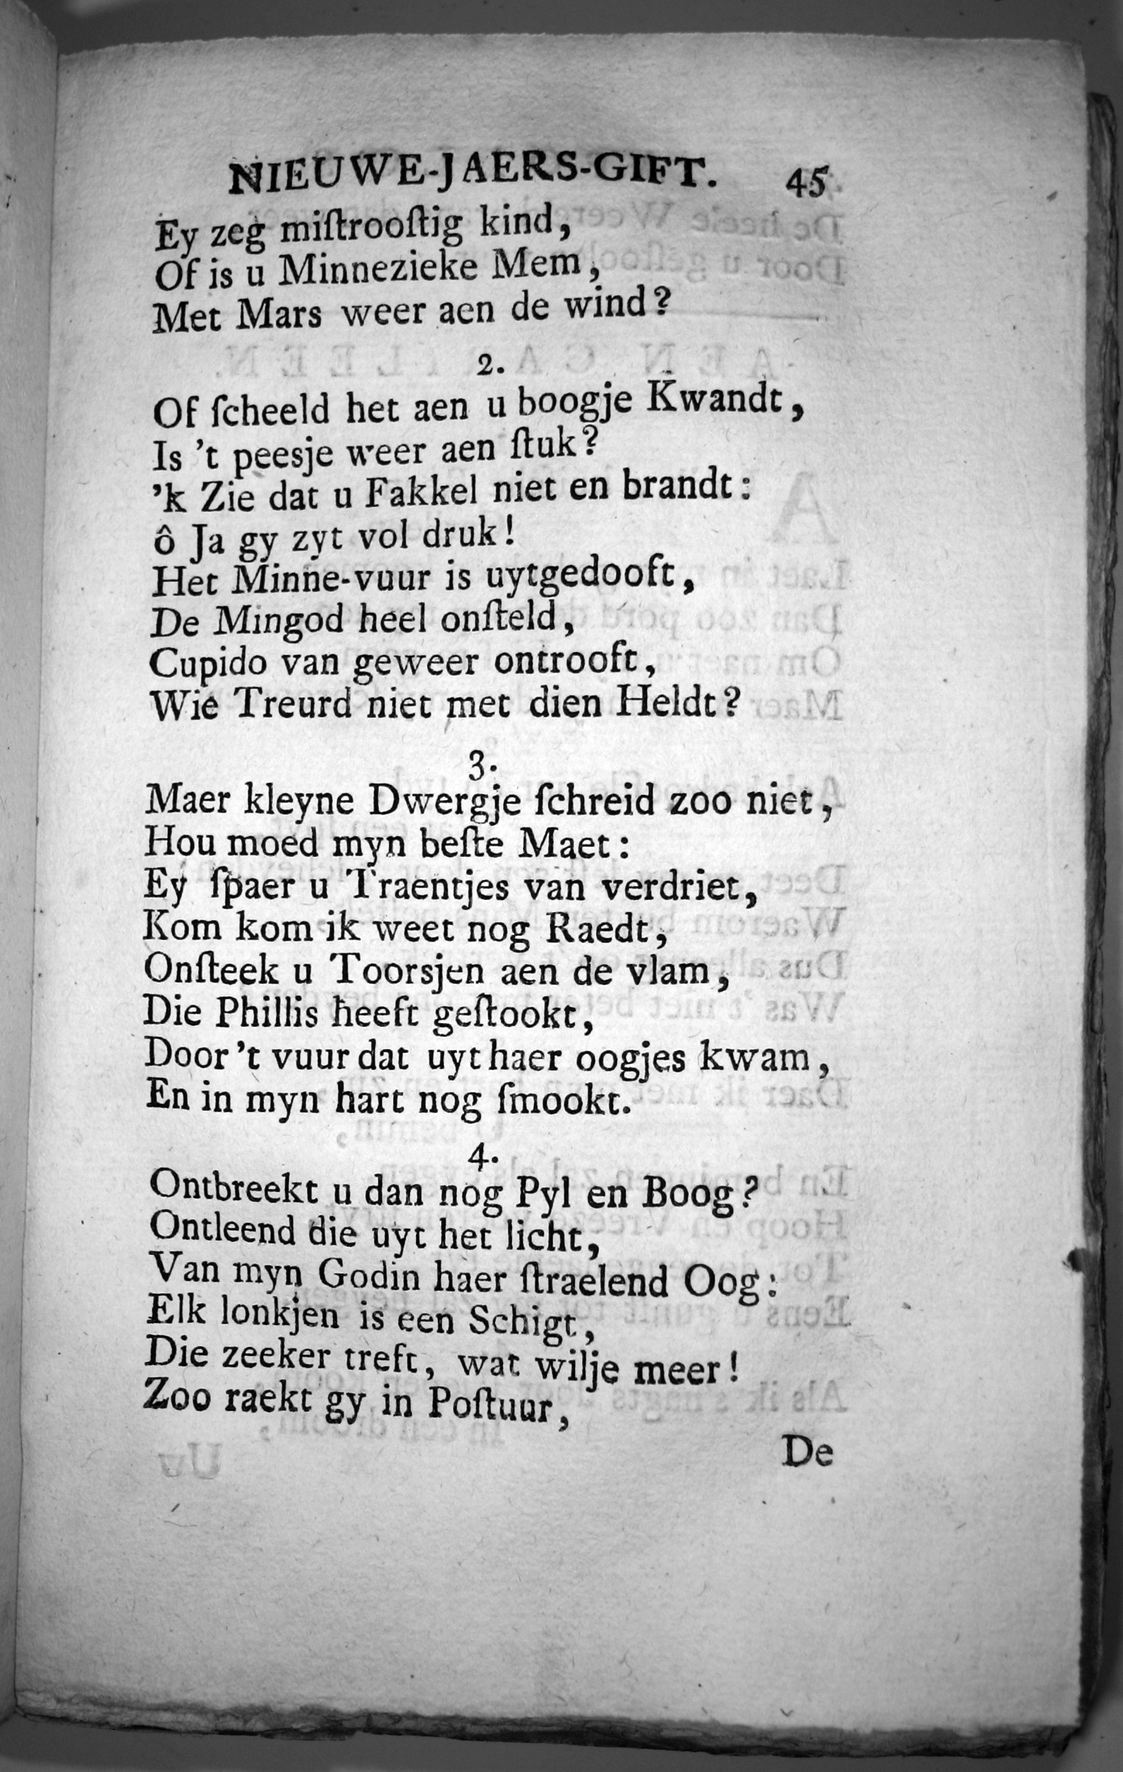 NIEUWE-JAERS-GIFT. 45
Ey zeg miſtrooſtig kind,
Of is u Minnezieke Mem,
Met Mars weer aen de wind?
2.
Of ſcheeld het aen u boogje Kwandt,
Is 't peesje weer aen ſtuk?
'k Zie dat u Fakkel niet en brandt:
ô Ja gy zyt vol druk!
Het Minne-vuur is uytgedooft,
De Mingod heel onſteld,
Cupido van geweer ontrooft,
Wie Treurd niet met dien Heldt?
3.
Maer kleyne Dwergje ſchreid zoo niet,
Hou moed myn beſte Maet:
Ey ſpaer u Traentjes van verdriet,
Kom kom ik weet nog Raedt,
Onſteek u Toorsjen aen de vlam,
Die Phillis heeft geſtookt,
Door 't vuur dat uyt haer oogjes kwam,
En in myn hart nog ſmookt.
4.
Ontbreekt u dan nog Pyl en Boog?
Ontleend die uyt het licht,
Van myn Godin haer ſtraelend Oog:
Elk lonkjen is een Schigt,
Die zeeker treft, wat wilje meer!
Zoo raekt gy in Poſtuur,
De